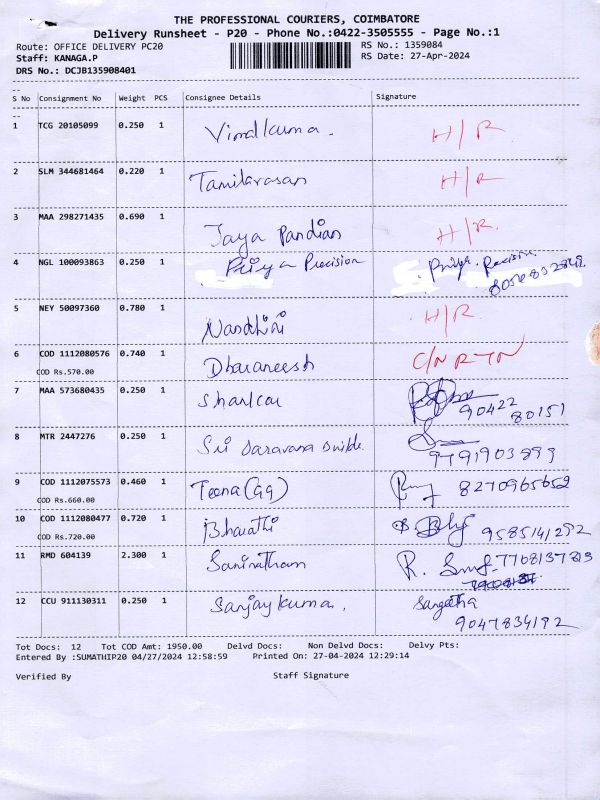 THE PROFESSIONAL COURIERS, COIMBATORE
Delivery Runsheet - P20 - Phone No.:0422-3505555 - Page No.:1
Route: OFFICE DELIVERY PC20 RS No.: 1359084
Staff: KANAGA.P RS Date: 27-Apr-2024
DRS No.: DCJB135908401
S No Consignment No Weight PCS Consignee Details Signature
1 TCG 20105099 0.250 1 Vimalkuma. H/R
2 SLM 344681464 0.220 1 Tamilarasan H/R
3 MAA 298271435 0.690 1 Jaya Pandian H/R.
4 NGL 100093863 0.250 1 Priya Precision Priya Precision
8056832848
5 NEY 50097360 0.780 1 Nandhini H/R.
6 COD 1112080576 0.740 1 Dharaneesh C/N RTN
COD Rs.570.00
7 MAA 573680435 0.250 1 Shankar 90422
80151
8 MTR 2447276 0.250 1 Sri Saravana
9791903899
9 COD 1112075573 0.460 1 Teena (GG) 8270965652
COD Rs.660.00
10 COD 1112080477 0.720 1 Bharathi 9585141292
COD Rs.720.00
11 RMD 604139 2.300 1 R. 7708137813
12 CCU 911130311 0.250 1 Sanjaykuma. Sangetha
9047834192
Tot Docs: 12 Tot COD Amt: 1950.00 Delvd Docs: Non Delvd Docs: Delvy Pts:
Entered By :SUMATHIP20 04/27/2024 12:58:59 Printed On: 27-04-2024 12:29:14
Verified By Staff Signature